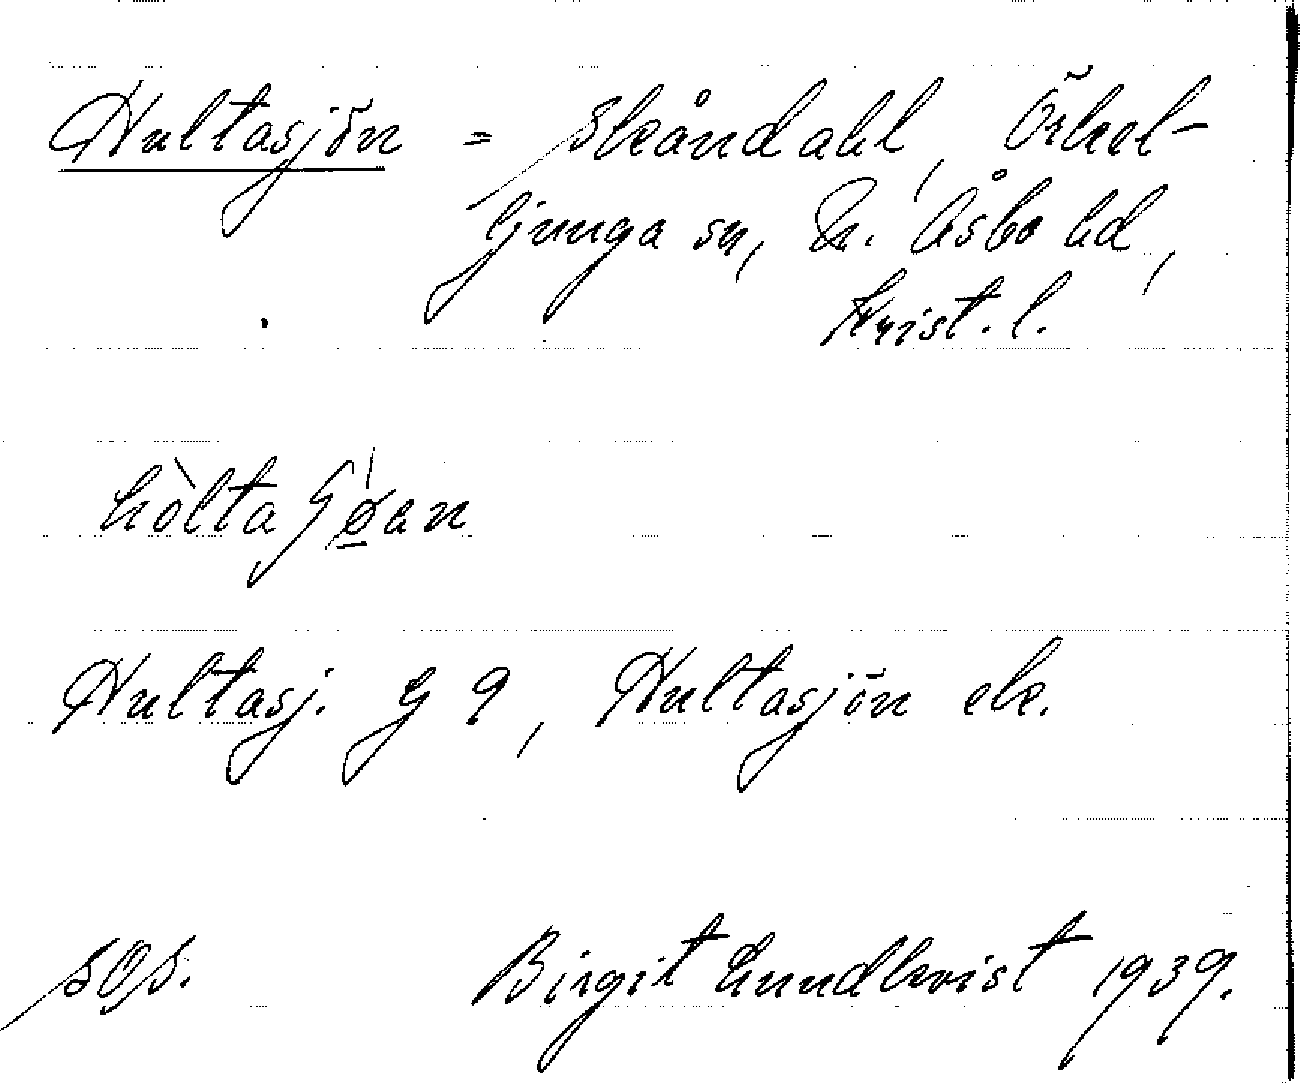 Hultasjön = Skåndahl, Örkel-
ljunga sn, N. Åsbo hd,
Krist. l.
hòltaʃǿ̱an
Hultasj. G 9, Hultasjön ek.
SOS. Birgit Lundkvist 1939.